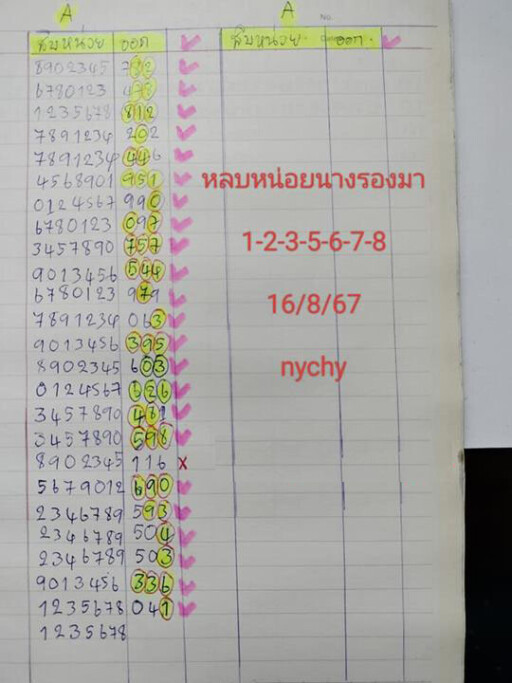 A
A
No.
สิบหน่วย ออก
สิบหน่วย ออก
8902345 732
6780123 473
1235678 812
7891234 202
7891234 446
4568901 951
0124567 990
6780123 097
3457890 757
9013456 544
6780123 979
7891234 063
9013456 395
8902345 603
0124567 626
3457890 481
3457890 598
8902345 116 x
5679012 690
2346789 593
2346789 504
2346789 503
9013456 336
1235678 041
1235678
หลบหน่อยนางรองมา
1-2-3-5-6-7-8
16/8/67
nychy